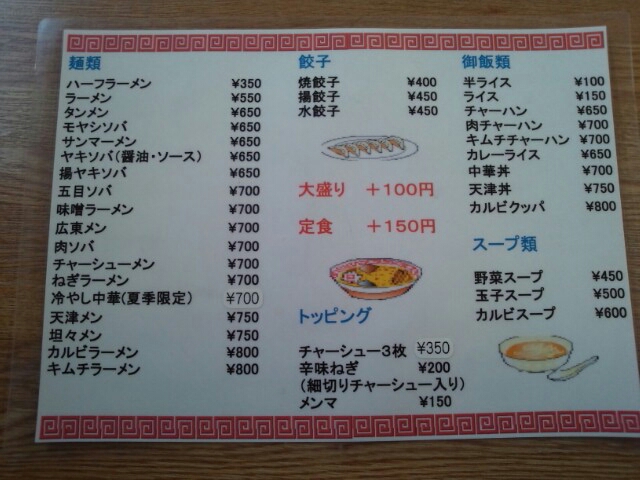 麺類
ハーフラーメン ¥350
ラーメン ¥550
タンメン ¥650
モヤシソバ ¥650
サンマーメン ¥650
ヤキソバ(醤油・ソース) ¥650
揚ヤキソバ ¥650
五目ソバ ¥700
味噌ラーメン ¥700
広東メン ¥700
肉ソバ ¥700
チャーシューメン ¥700
ねぎラーメン ¥700
冷やし中華(夏季限定) ¥700
天津メン ¥750
坦々メン ¥750
カルビラーメン ¥800
キムチラーメン ¥800
餃子
焼餃子 ¥400
揚餃子 ¥450
水餃子 ¥450
大盛り +100円
定食 +150円
トッピング
チャーシュー3枚 ¥350
辛味ねぎ ¥200
(細切りチャーシュー入り)
メンマ ¥150
御飯類
半ライス ¥100
ライス ¥150
チャーハン ¥650
肉チャーハン ¥700
キムチチャーハン ¥700
カレーライス ¥650
中華丼 ¥700
天津丼 ¥750
カルビクッパ ¥800
スープ類
野菜スープ ¥450
玉子スープ ¥500
カルビスープ ¥600